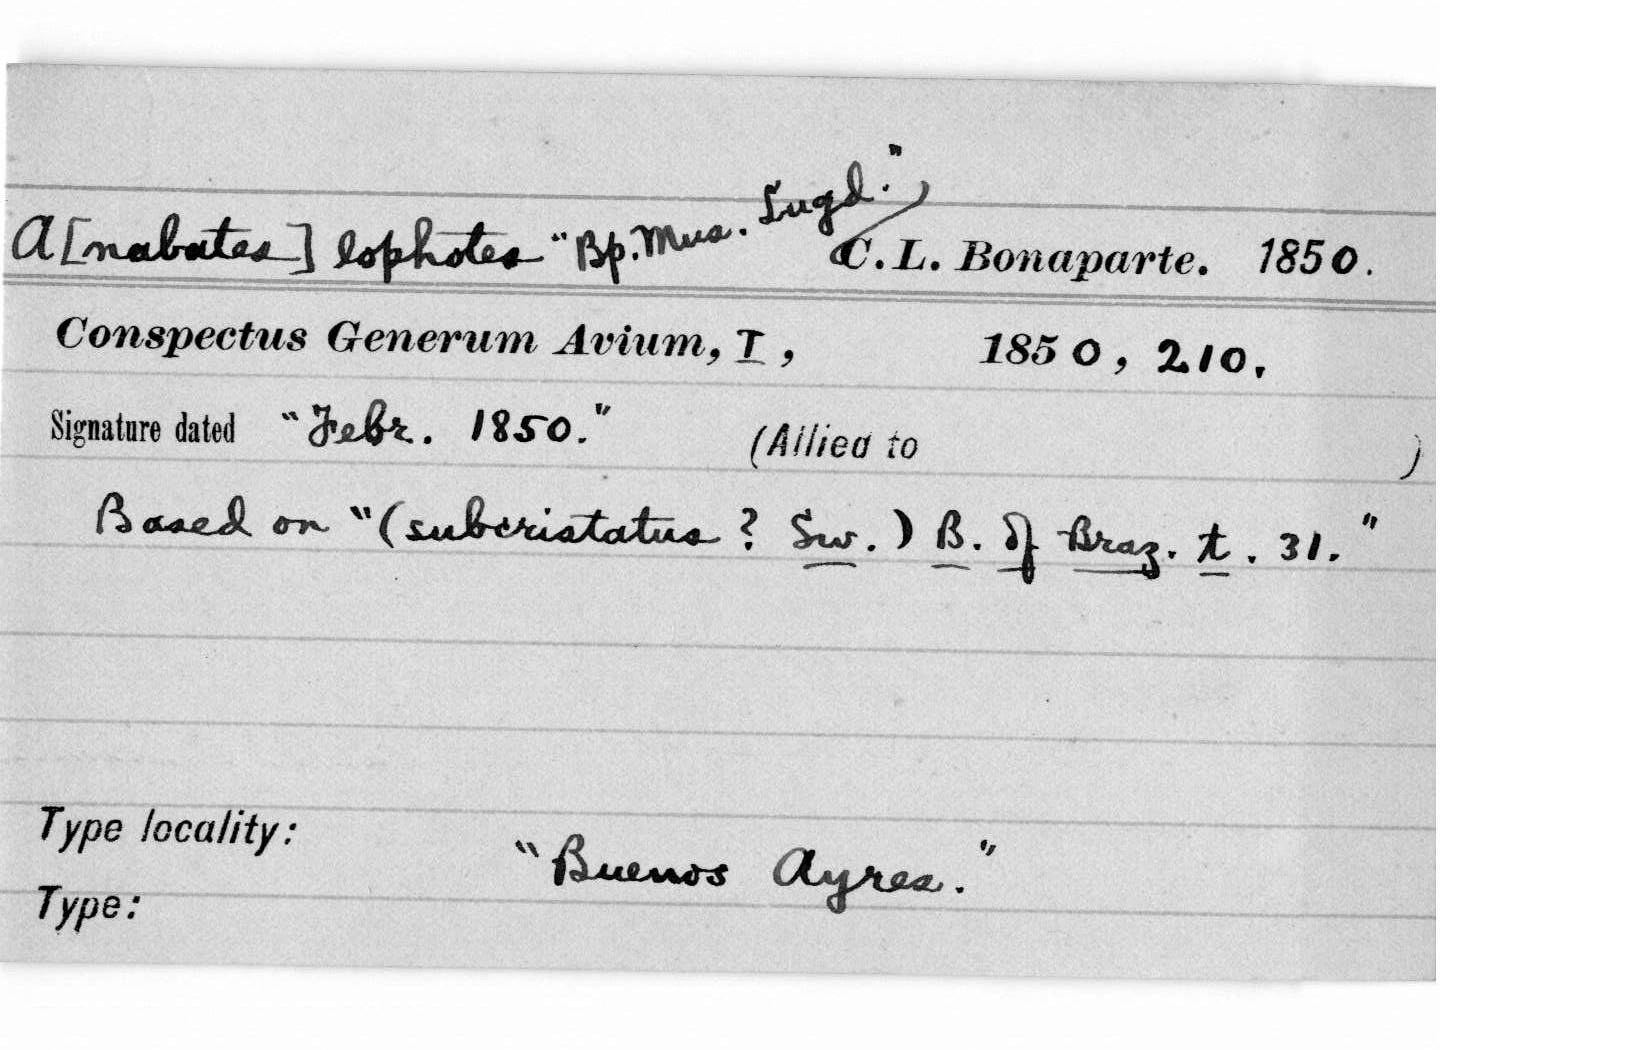 A[nabates] lophotes "Bp. Mus. Lugd." C. L. Bonaparte. 1850.
Conspectus Generum Avium, I, 1850, 210.
Signature dated "Febr. 1850." (Allied to )
Based on "(subcristatus ? Sw.) B. of Braz. t. 31."
Type locality:
"Buenos Ayres."
Type: